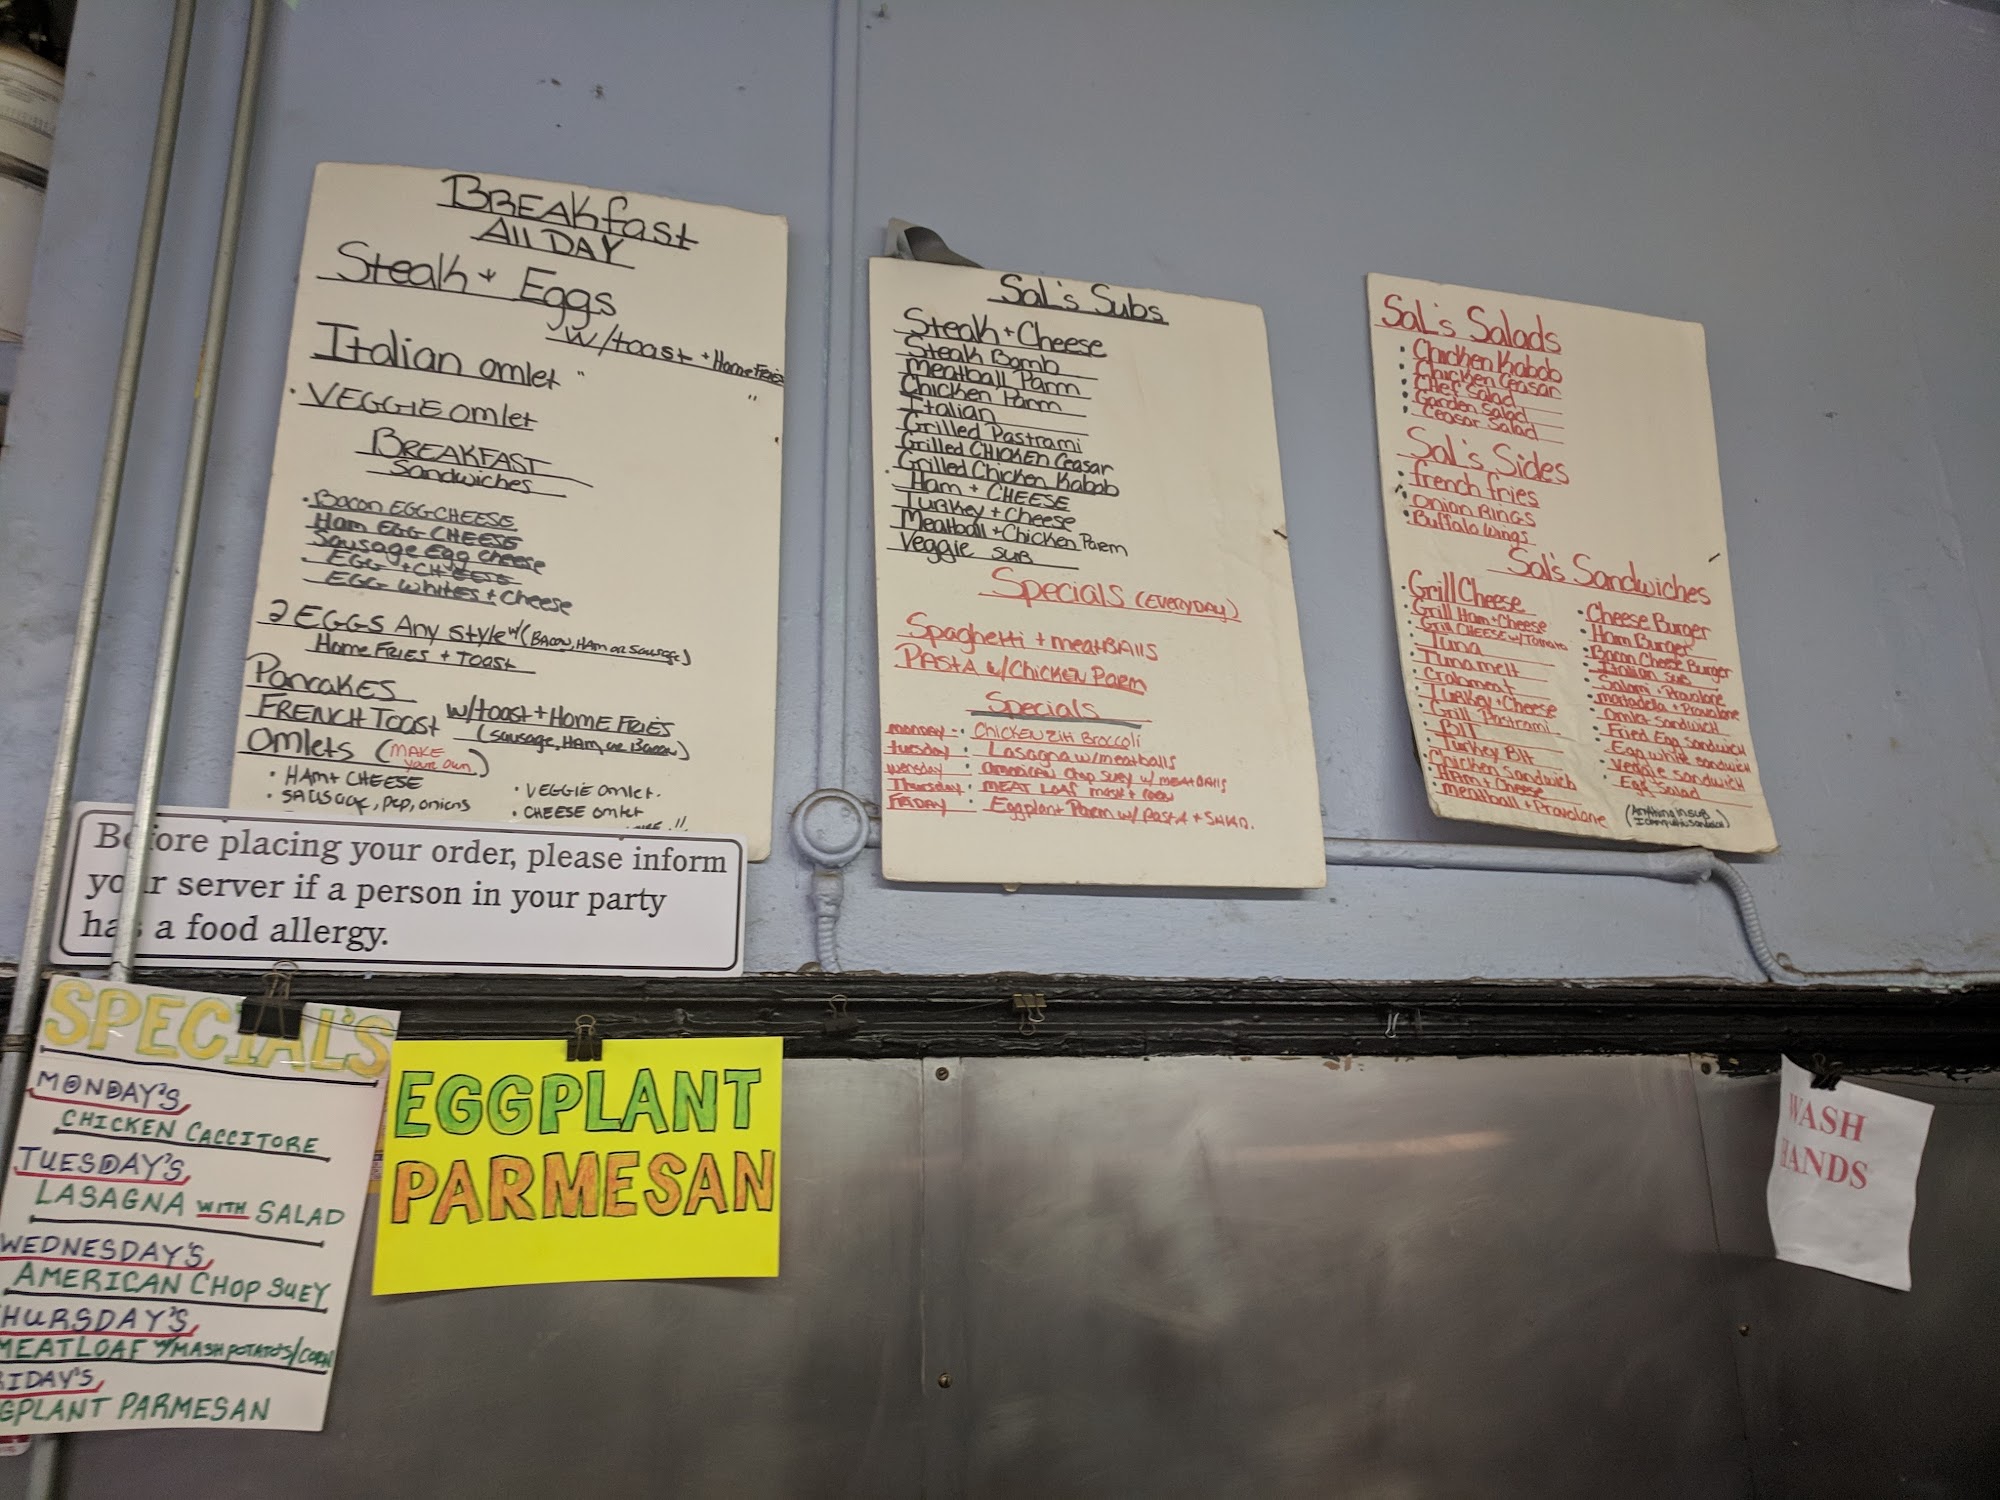 BREAKfast
All DAY
Steak + Eggs
w/toast + Home Fries
Italian omlet "
"
· VEGGIE omlet
BREAKFAST
Sandwiches
· Bacon EGG CHEESE
Ham EGG CHEESE
Sausage Egg cheese
· EGG + CHEESE
EGG whites + Cheese
2 EGGS Any style w/ (BACON, HAM or Sausage)
Home FRIES + TOAST
PancAKES
FRENCH TOAST w/toast + HOME FRIES
(sausage, HAM, or Bacon)
Omlets (MAKE your own)
· HAM + CHEESE
· SAUSAGE, pep, onions
· VEGGIE omlet.
· CHEESE omlet
Before placing your order, please inform
your server if a person in your party
has a food allergy.
SPECIAL'S
MONDAY'S,
CHICKEN CACCITORE
TUESDAY'S,
LASAGNA WITH SALAD
WEDNESDAY'S,
AMERICAN CHOP SUEY
HURSDAY'S,
MEATLOAF w/MASH POTATO'S/CORN
RIDAY'S,
GPLANT PARMESAN
EGGPLANT
PARMESAN
Sal's Subs
Steak + Cheese
Steak Bomb
Meatball Parm
Chicken Parm
Italian
Grilled Pastrami
Grilled CHICKEN Ceasar
Grilled Chicken Kabob
Ham + CHEESE
Turkey + Cheese
Meatball + Chicken Parm
Veggie sub
Specials (EVERYDAY)
Spaghetti + meatBAlls
PASTA w/CHICKEN PARM
Specials
monday - : CHICKEN Ziti Broccoli
tuesday : Lasagna w/meatballs
wensday : American Chop Suey w/ MEATBALLS
Thursday : MEAT LOAF mash + corn
FRIDAY : Eggplant Parm w/ PASTA + SALAD.
Sal's Salads
· Chicken Kabob
· Chicken Ceasar
· Chef Salad
· Garden Salad
· Ceasar Salad
Sal's Sides
· french fries
· onion RINGS
· Buffalo wings
Sal's Sandwiches
· Grill Cheese
· Grill Ham + Cheese
· Grill CHEESE w/Tomato
· Tuna
· Tuna melt
· Crabmeat
· Turkey + Cheese
· Grill Pastrami
· Blt
· Turkey Blt
· Chicken Sandwich
· Ham + Cheese
· meatball + Provolone
· Cheese Burger
· Ham Burger
· Bacon Cheese Burger
· Italian sub
· Salami + Provolone
· mortadella + Provolone
· Omlet sandwich
· Fried Egg sandwich
· Egg white sandwich
· Veggie sandwich
· Egg Salad
WASH
HANDS